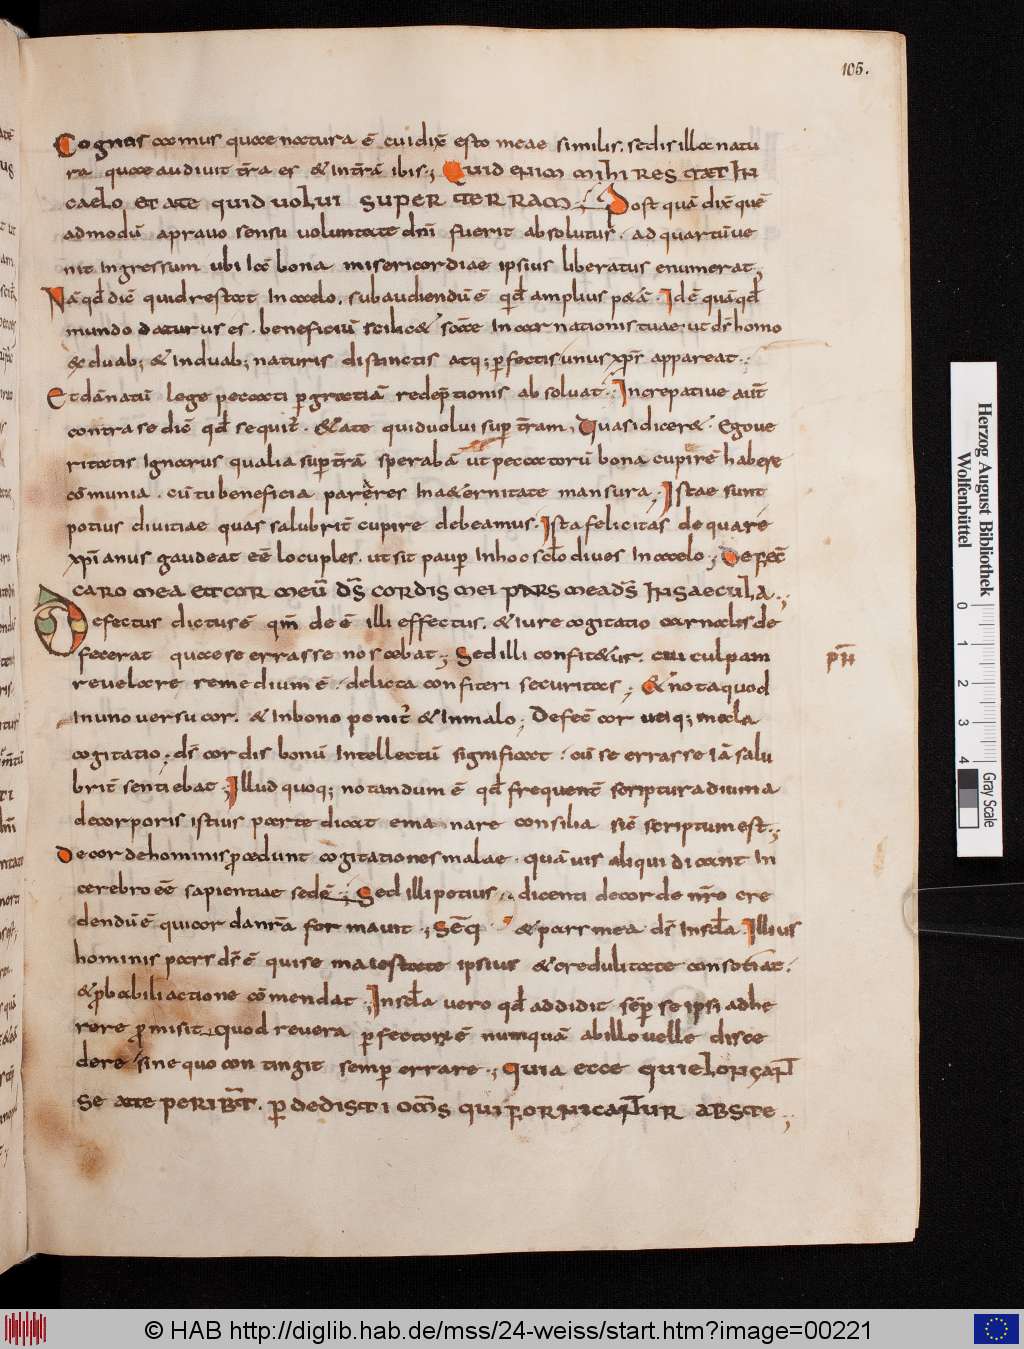 105.
Cognas camus quae natura ē cui dix̄ esto meae similis. sed is illa natu
ra quae audivit t̄ra es & int̄rā ibis; Quid enim mihi restat in
caelo et a te quid volui super terram; Post quā dix̄ quē
admodū a pravo sensu voluntate dn̄i fuerit absolutus. ad quartū ve
nit ingressum ubi iā bona misericordiae ipsius liberatus enumerat;
Nā qd̄ dic̄ quid restat in caelo. subaudiendū ē qd̄ amplius p&ā. Idē quā qd̄
mundo daturus es. beneficiū scilic& scāe incarnationis tuae ut ds̄ homo
& duab; & in duab; naturis distinctis atq; p̄fectis unus xp̄s appareat.
Et dānatū lege peccati p̄ gratiā redēptionis absolvat. Increpative aut̄
contra se dic̄ qd̄ sequit̄. & a te quid volui sup̄ t̄ram; Quasi dicer&. Ego ve
ritatis ignarus qualia sup̄ t̄rā sperabā ut peccatorū bona cupirē habere
cōmunia. cū tu beneficia pareres in a&ernitate mansura; Istae sunt
potius divitiae quas salubrit̄ cupire debeamus. Ista felicitas de qua re
xp̄ianus gaudeat eē locuples. ut sit paup̄ in hoc sc̄lo dives in caelo; Defec̄
caro mea et cor meū ds̄ cordis mei pars mea ds̄ in saecula;
Defectus dictus ē qm̄ de ē illi effectus. & iure cogitatio carnalis de
fecerat quae se errasse noscebat; Sed illi confit&ur cui culpam
revelare remedium ē. delicta confiteri securitas; & nota quod
in uno versu cor. & in bono ponit̄ & in malo; Defec̄ cor utiq; mala
cogitatio; ds̄ cordis bonū intellectū significat. cū se errasse iā salu
brit̄ sentiebat; Illud quoq; notandum ē qd̄ frequent̄ scriptura divina
de corporis istius parte dicat emanare consilia sic̄ scriptum est;
De corde hominis p̄cedunt cogitationes malae. quāvis aliqui dicant in
cerebro eē sapientiae sedē; Sed illi potius dicenti de corde nr̄o cre
dendū ē qui cor danr̄a formavit; Seq̄ & pars mea ds̄ in sc̄la. Illius
hominis pars ds̄ ē qui se maiestate ipsius & credulitate consotiat.
& p̄babili actione cōmendat; In sc̄la vero qd̄ addidit sēp̄ se ipsi adhe
rere p̄misit. quod revera p̄fectorū ē numquā ab illo velle disce
dere sine quo contingit semp̄ errare; Quia ecce qui elongant
se a te peribt̄. p̄dedisti om̄s qui fornicantur abs te;
Herzog August Bibliothek
Wolfenbüttel
0 1 2 3 4
Gray Scale
© HAB http://diglib.hab.de/mss/24-weiss/start.htm?image=00221